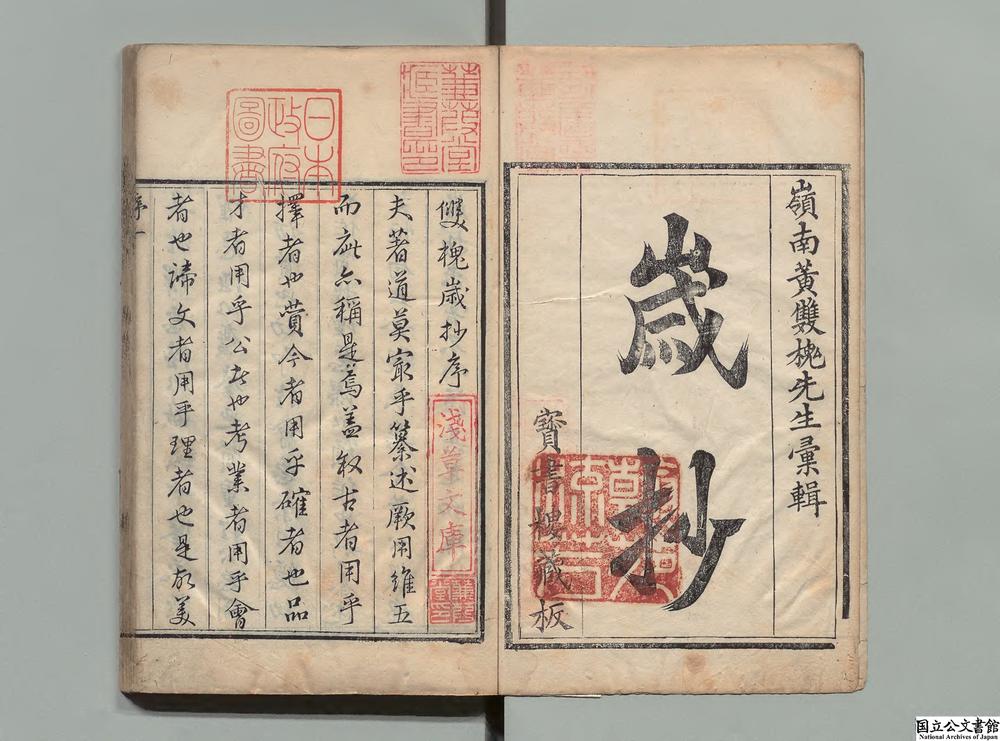 嶺南黃雙槐先生彙輯
歲抄
寶書樓藏板
雙槐歲抄序
夫著道莫宏乎纂述厥用維五
而疵亦稱是焉蓋叙古者用乎
擇者也賞今者用乎確者也品
才者用乎公者也考業者用乎會
者也諦文者用乎理者也是故美
序一
日本
政府
圖書
蒹葭堂
淺草文庫
国立公文書館
National Archives of Japan